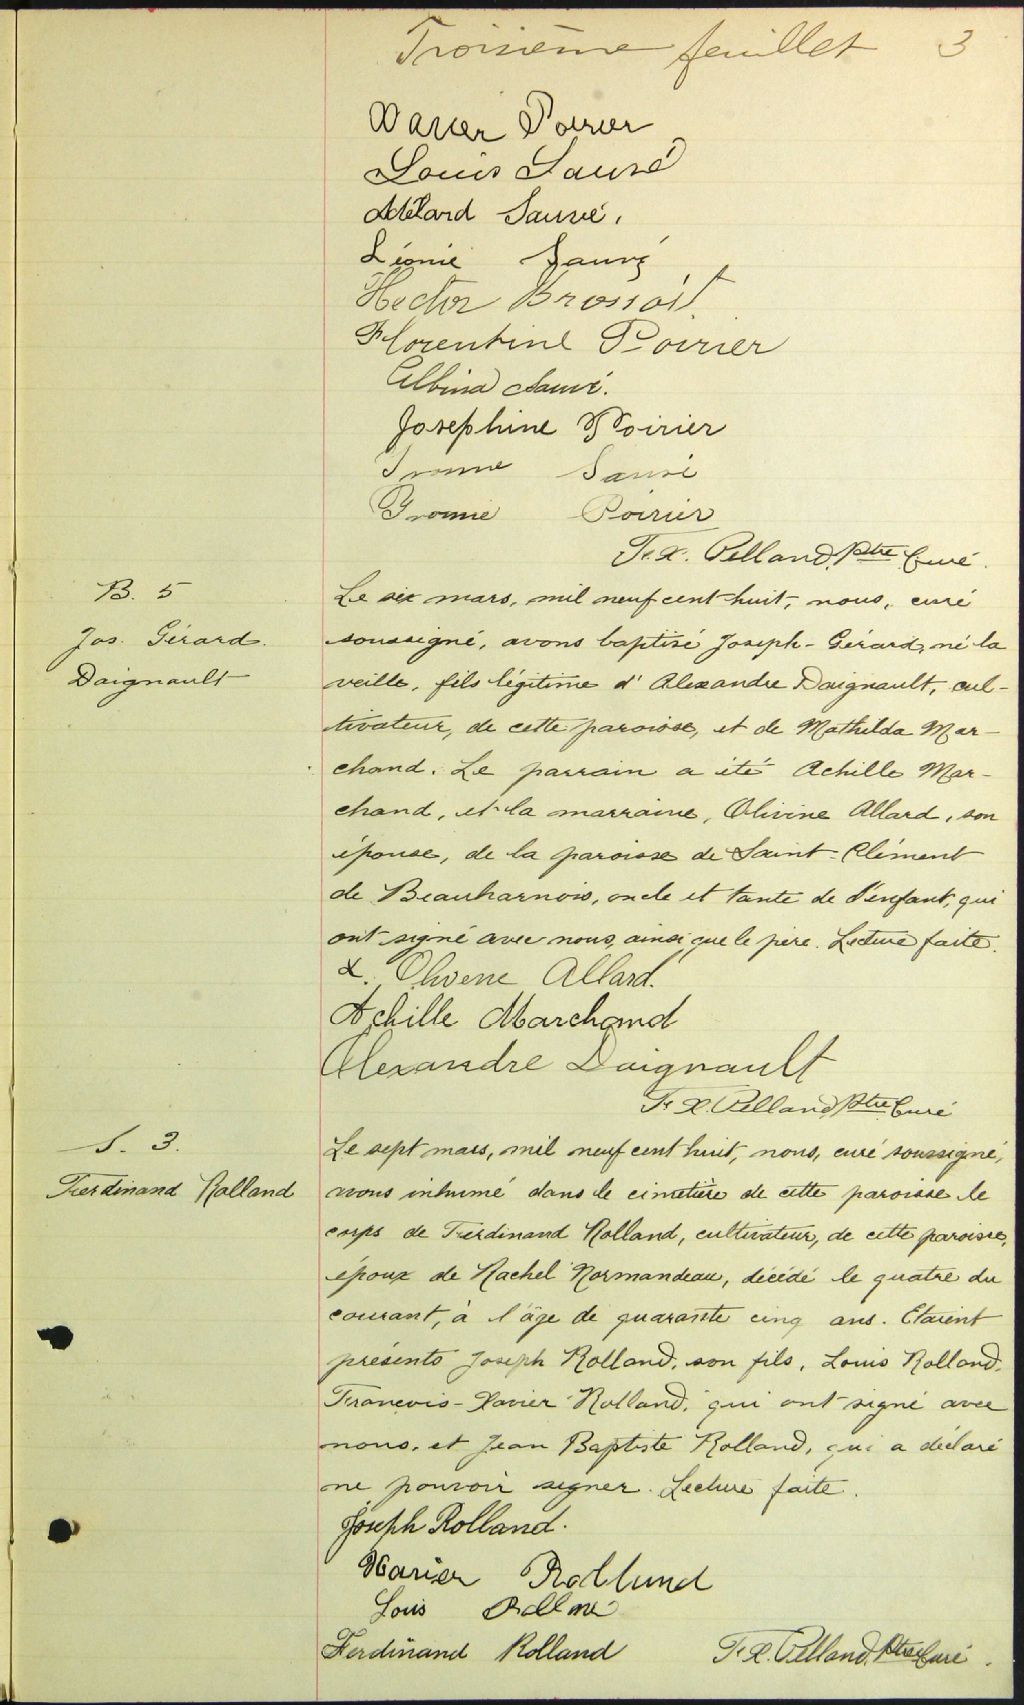 Troisième feuillet 3
Xavier Poirier
Louis Sauvé
Adélard Sauvé.
Léonie Sauvé
Hector Brossoit
Florentine Poirier
Albina Sauvé.
Josephine Poirier
Ivonne Sauvé
Yvonne Poirier
F. X. Pelland, Ptre Curé.
B. 5
Jos. Gérard
Daignault
Le six mars, mil neuf cent huit, nous, curé
soussigné, avons baptisé Joseph-Gérard, né la
veille, fils légitime d'Alexandre Daignault, cul-
tivateur, de cette paroisse, et de Mathilda Mar-
chand. Le parrain a été Achille Mar-
chand, et la marraine, Olivine Allard, son
épouse, de la paroisse de Saint-Clément
de Beauharnois, oncle et tante de l'enfant, qui
ont signé avec nous, ainsi que le père. Lecture faite.
x. Olivene Allard.
Achille Marchand
Alexandre Daignault
F. X. Pelland Ptre Curé
S. 3.
Ferdinand Rolland
Le sept mars, mil neuf cent huit, nous, curé soussigné,
avons inhumé dans le cimetière de cette paroisse le
corps de Ferdinand Rolland, cultivateur, de cette paroisse,
époux de Rachel Normandeau, décédé le quatre du
courant, à l'âge de quarante cinq ans. Etaient
présents Joseph Rolland, son fils, Louis Rolland,
François-Xavier Rolland, qui ont signé avec
nous, et Jean Baptiste Rolland, qui a déclaré
ne pouvoir signer. Lecture faite.
Joseph Rolland.
Xavier Rolland
Louis
Ferdinand Rolland F. X. Pelland, Ptre Curé.